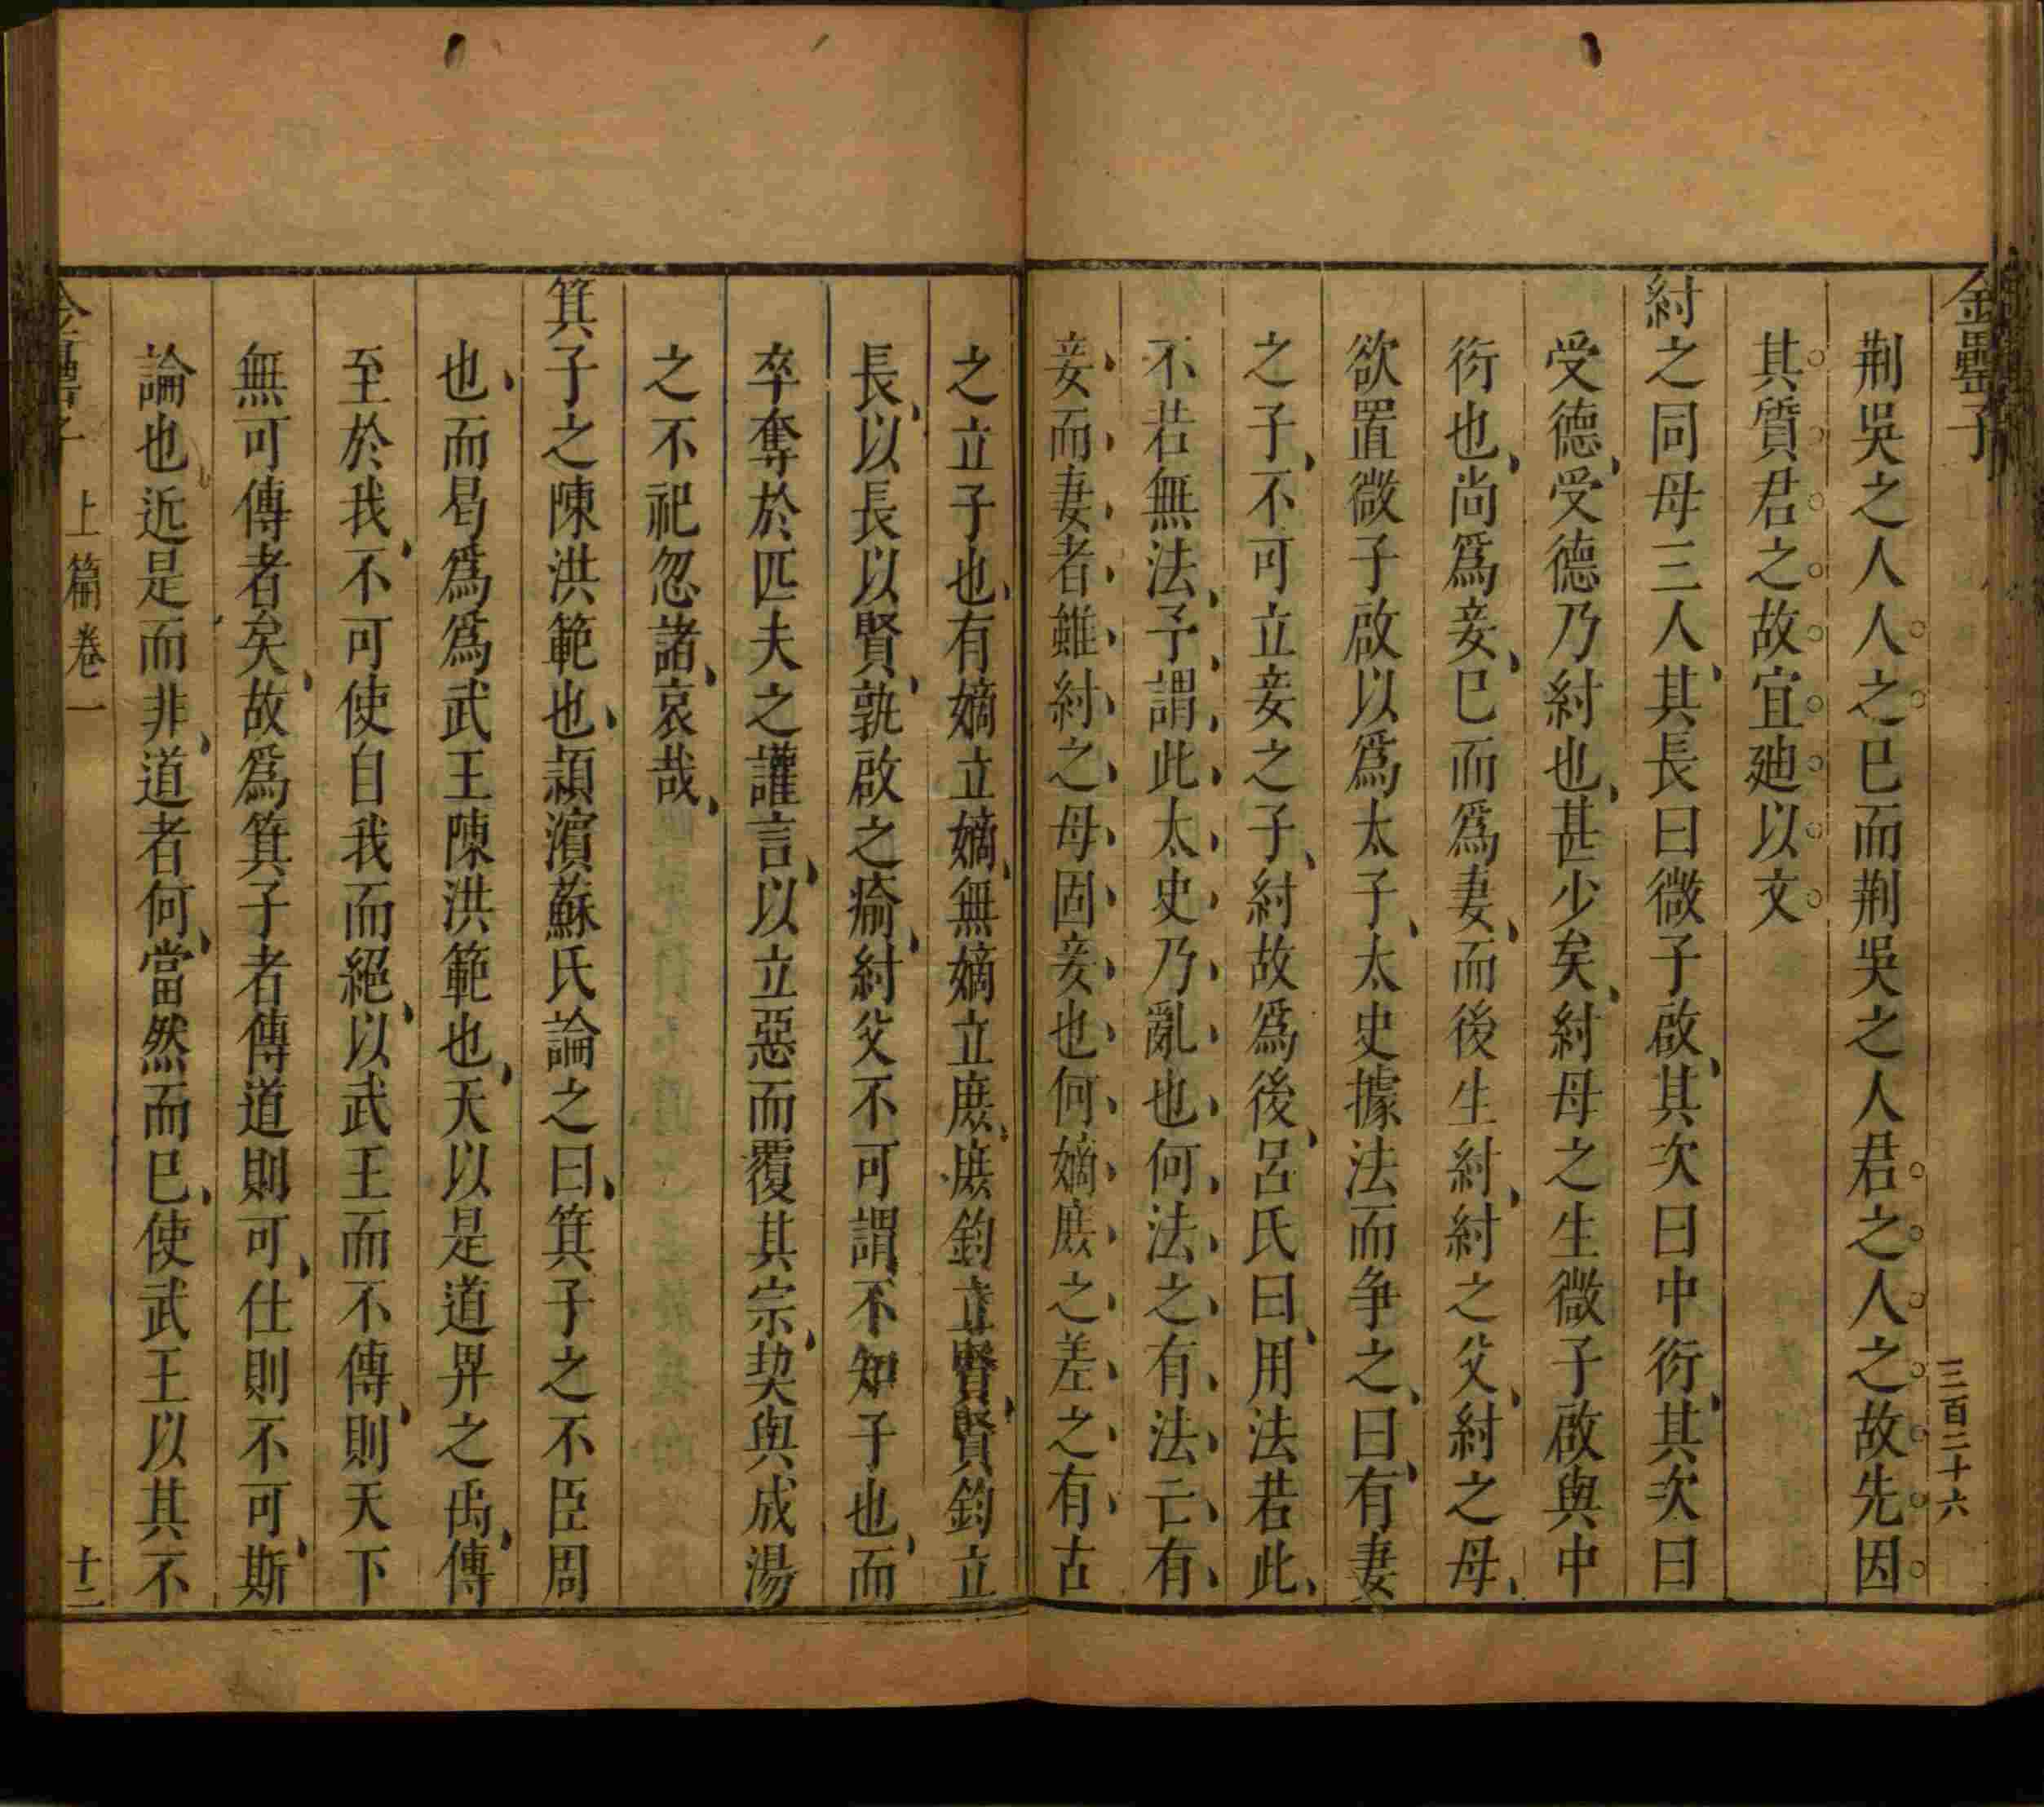 金罍子
三百二十六
荆吳之人人之巳而荆吳之人君之人之故先因
其質君之故宜廸以文
紂之同母三人其長曰微子啟其次曰中衍其次曰
受德受德乃紂也甚少矣紂母之生微子啟與中
衍也尚爲妾巳而爲妻而後生紂紂之父紂之母
欲置微子啟以爲太子太史據法而争之曰有妻
之子不可立妾之子紂故爲後呂氏曰用法若此
不若無法予謂此太史乃亂也何法之有法亡有
妾而妻者雖紂之母固妾也何嫡庶之差之有古
之立子也有嫡立嫡無嫡立庶庶鈞立賢賢鈞立
長以長以賢孰啟之瘉紂父不可謂不知子也而
卒奪於匹夫之讙言以立惡而覆其宗契與成湯
之不祀忽諸哀哉
箕子之陳洪範也潁濵蘇氏論之曰箕子之不臣周
也而曷爲爲武王陳洪範也天以是道畀之禹傳
至於我不可使自我而絕以武王而不傳則天下
無可傳者矣故爲箕子者傳道則可仕則不可斯
論也近是而非道者何當然而巳使武王以其不
上篇卷一
十二